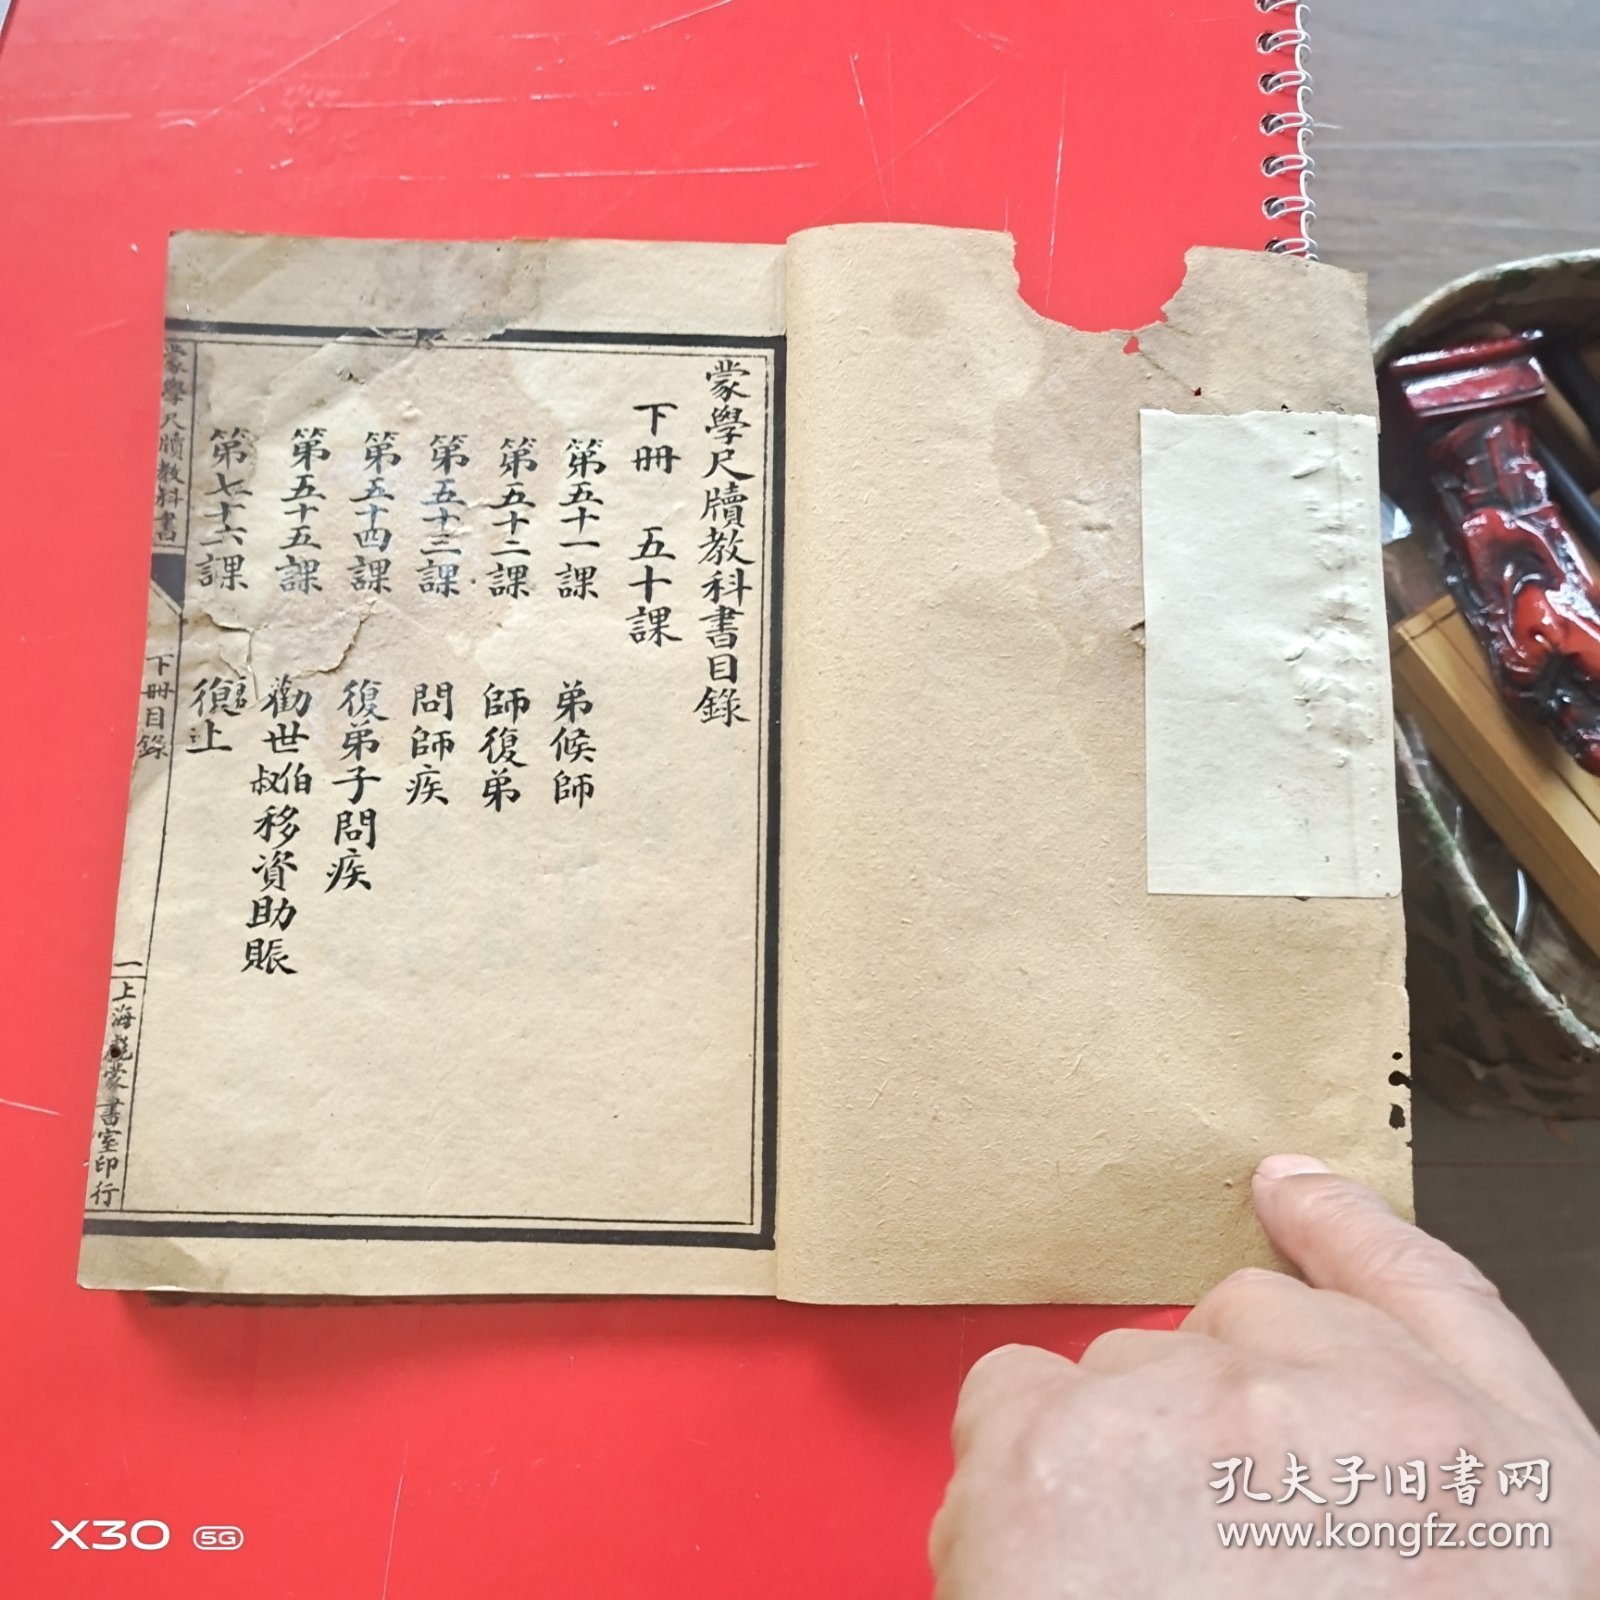 蒙學尺牘教科書目錄
下冊 五十課
第五十一課 弟候師
第五十二課 師復弟
第五十三課 問師疾
第五十四課 復弟子問疾
第五十五課 勸世伯叔移資助賬
第七十六課 復上
蒙學尺牘教科書
下冊目錄
一
上海彪蒙書室印行
X30 5G
孔夫子旧书网
www.kongfz.com